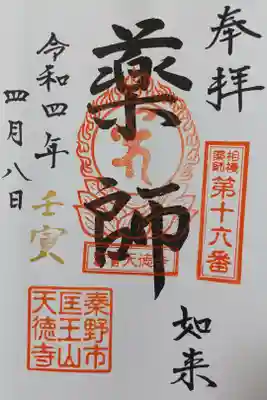 奉拝
相模
薬師
第十六番
薬師
如来
令和四年
壬寅
四月八日
秦野市
匡王山
天徳寺